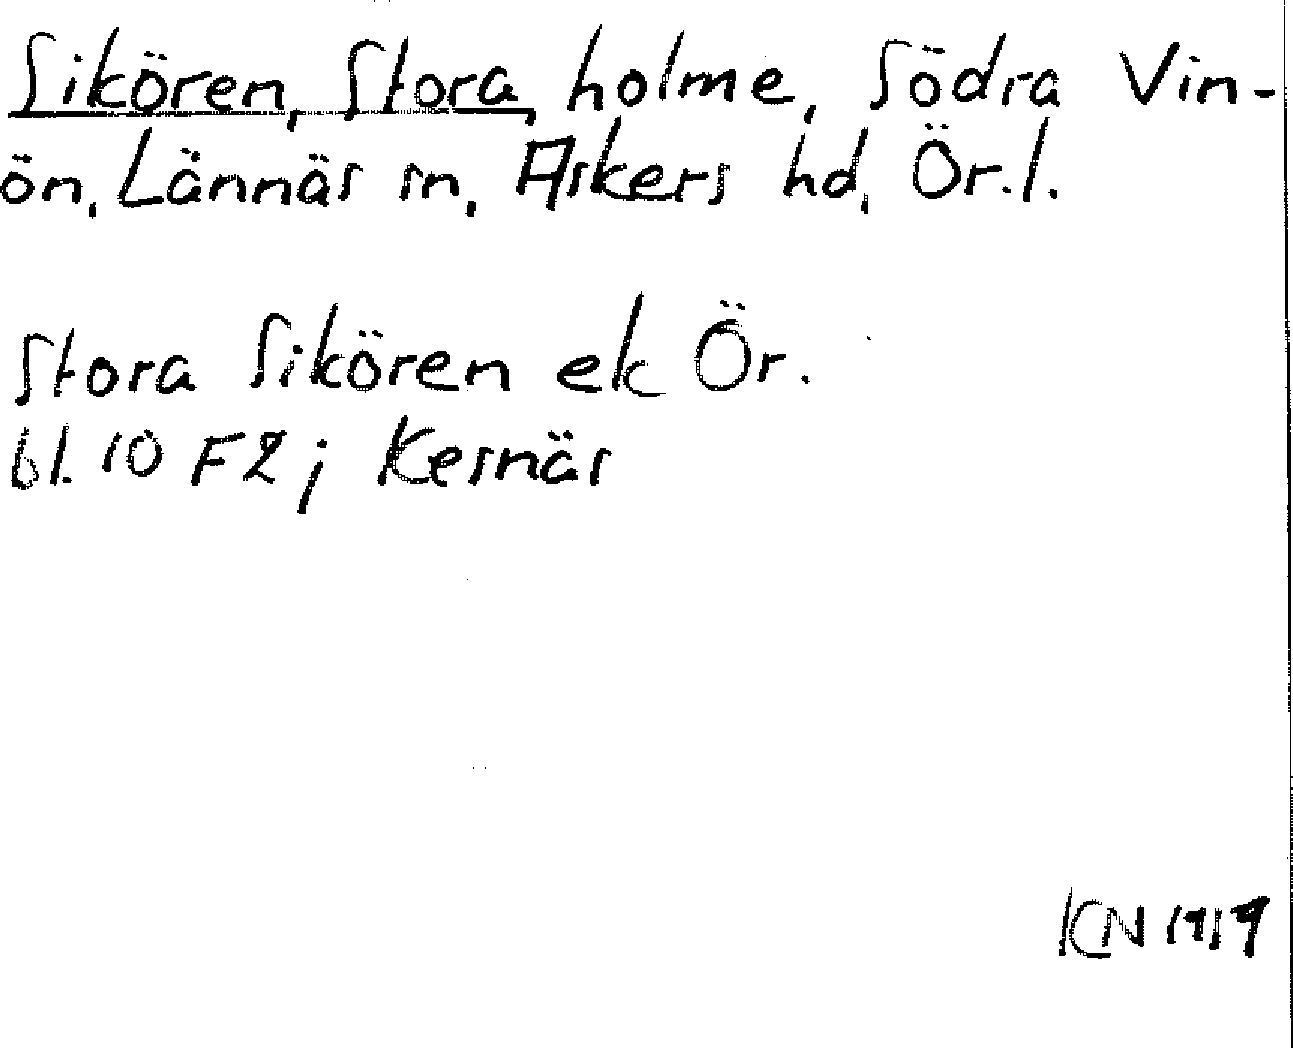 Sikören, Stora, holme, Södra Vin-
ön, Lännäs sn, Askers hd, Ör.l.
Stora Sikören ek Ör.
bl. 10 F2; Kesnäs
KN 1919